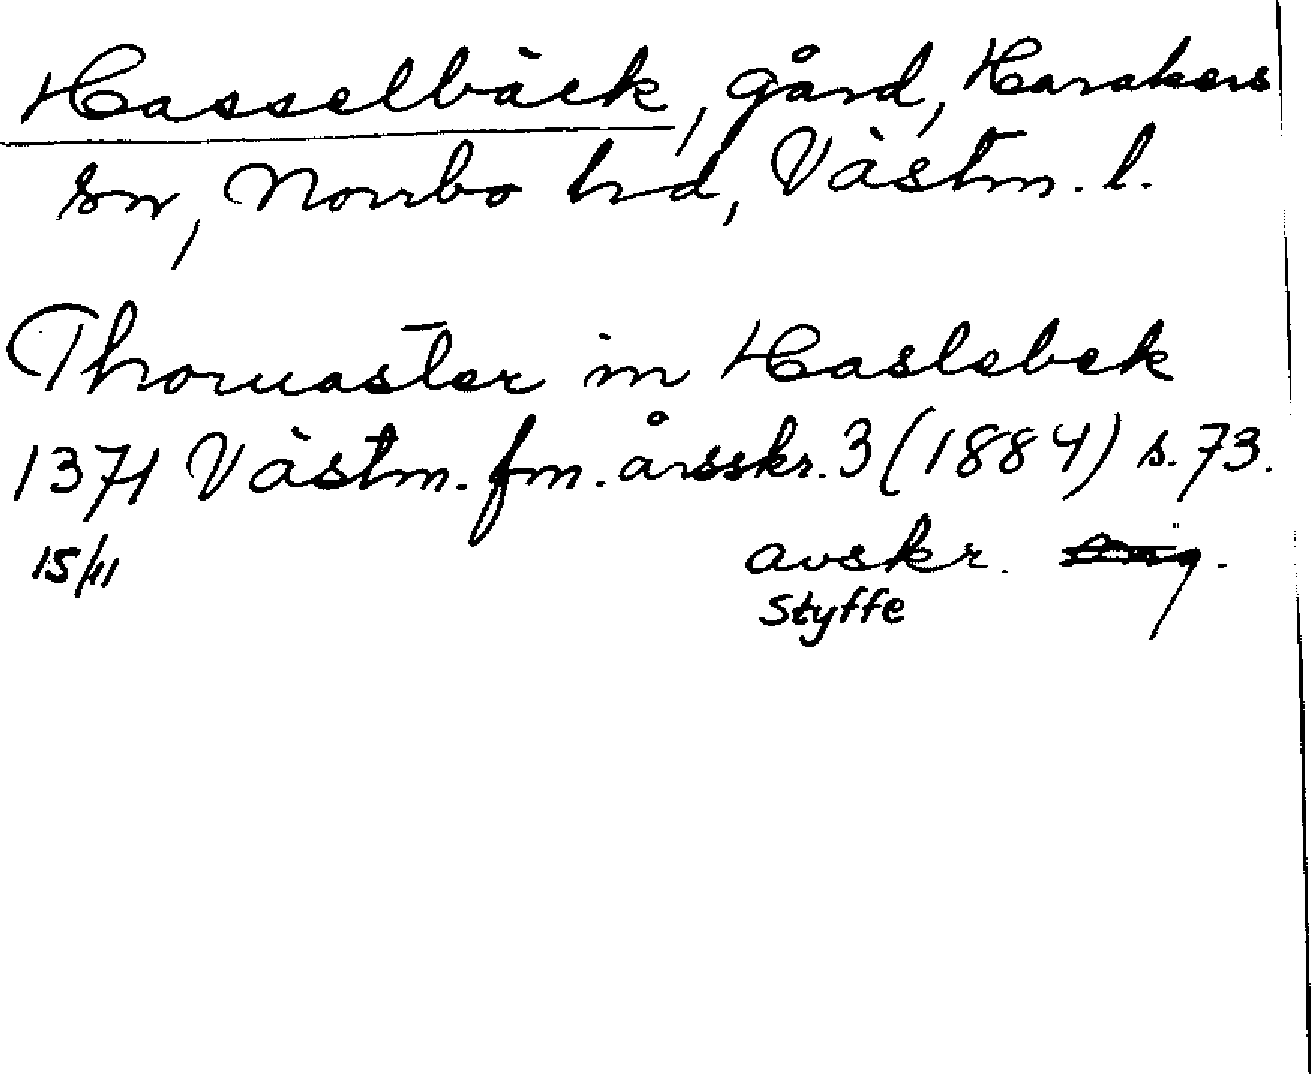 Hasselbäck, gård, Harakers
sn, Norrbo hd, Västm. l.
Thomaster in Haslebek
1371 Västm. fm. årsskr. 3 (1884) s. 73.
15/11 avskr.
Styffe